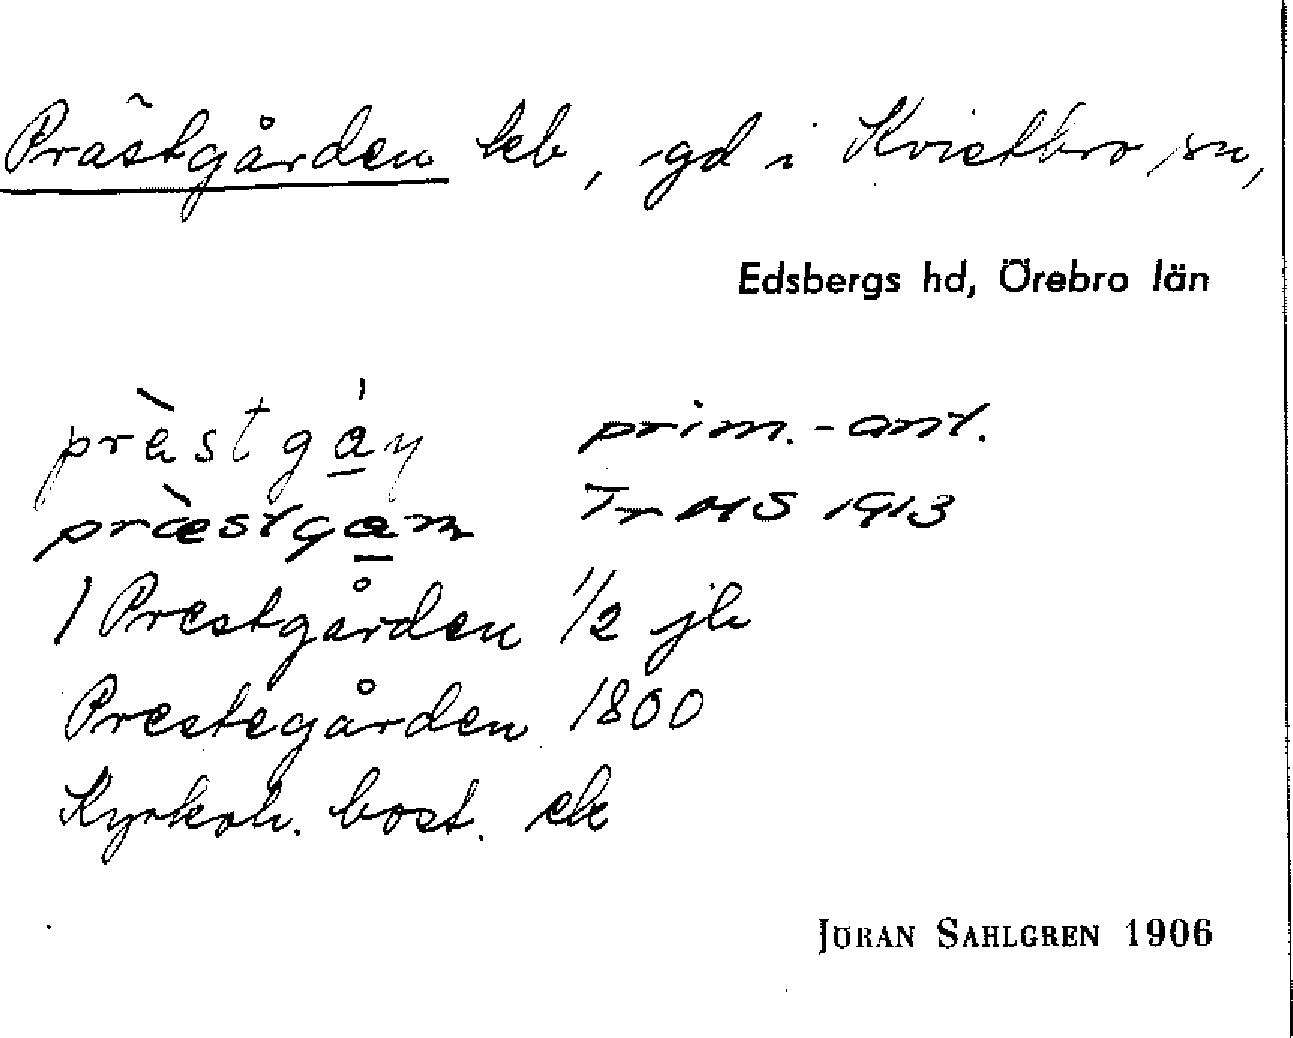 Prästgården kb, gd i Kvistbro sn,
Edsbergs hd, Örebro län
prὰstgáņ prim.-ant.
præstgan Tr MS 1913
1 Prestgården 1/2 jb
Prestegården 1800
Kyrkoh. bost. ek
JÖRAN SAHLGREN 1906